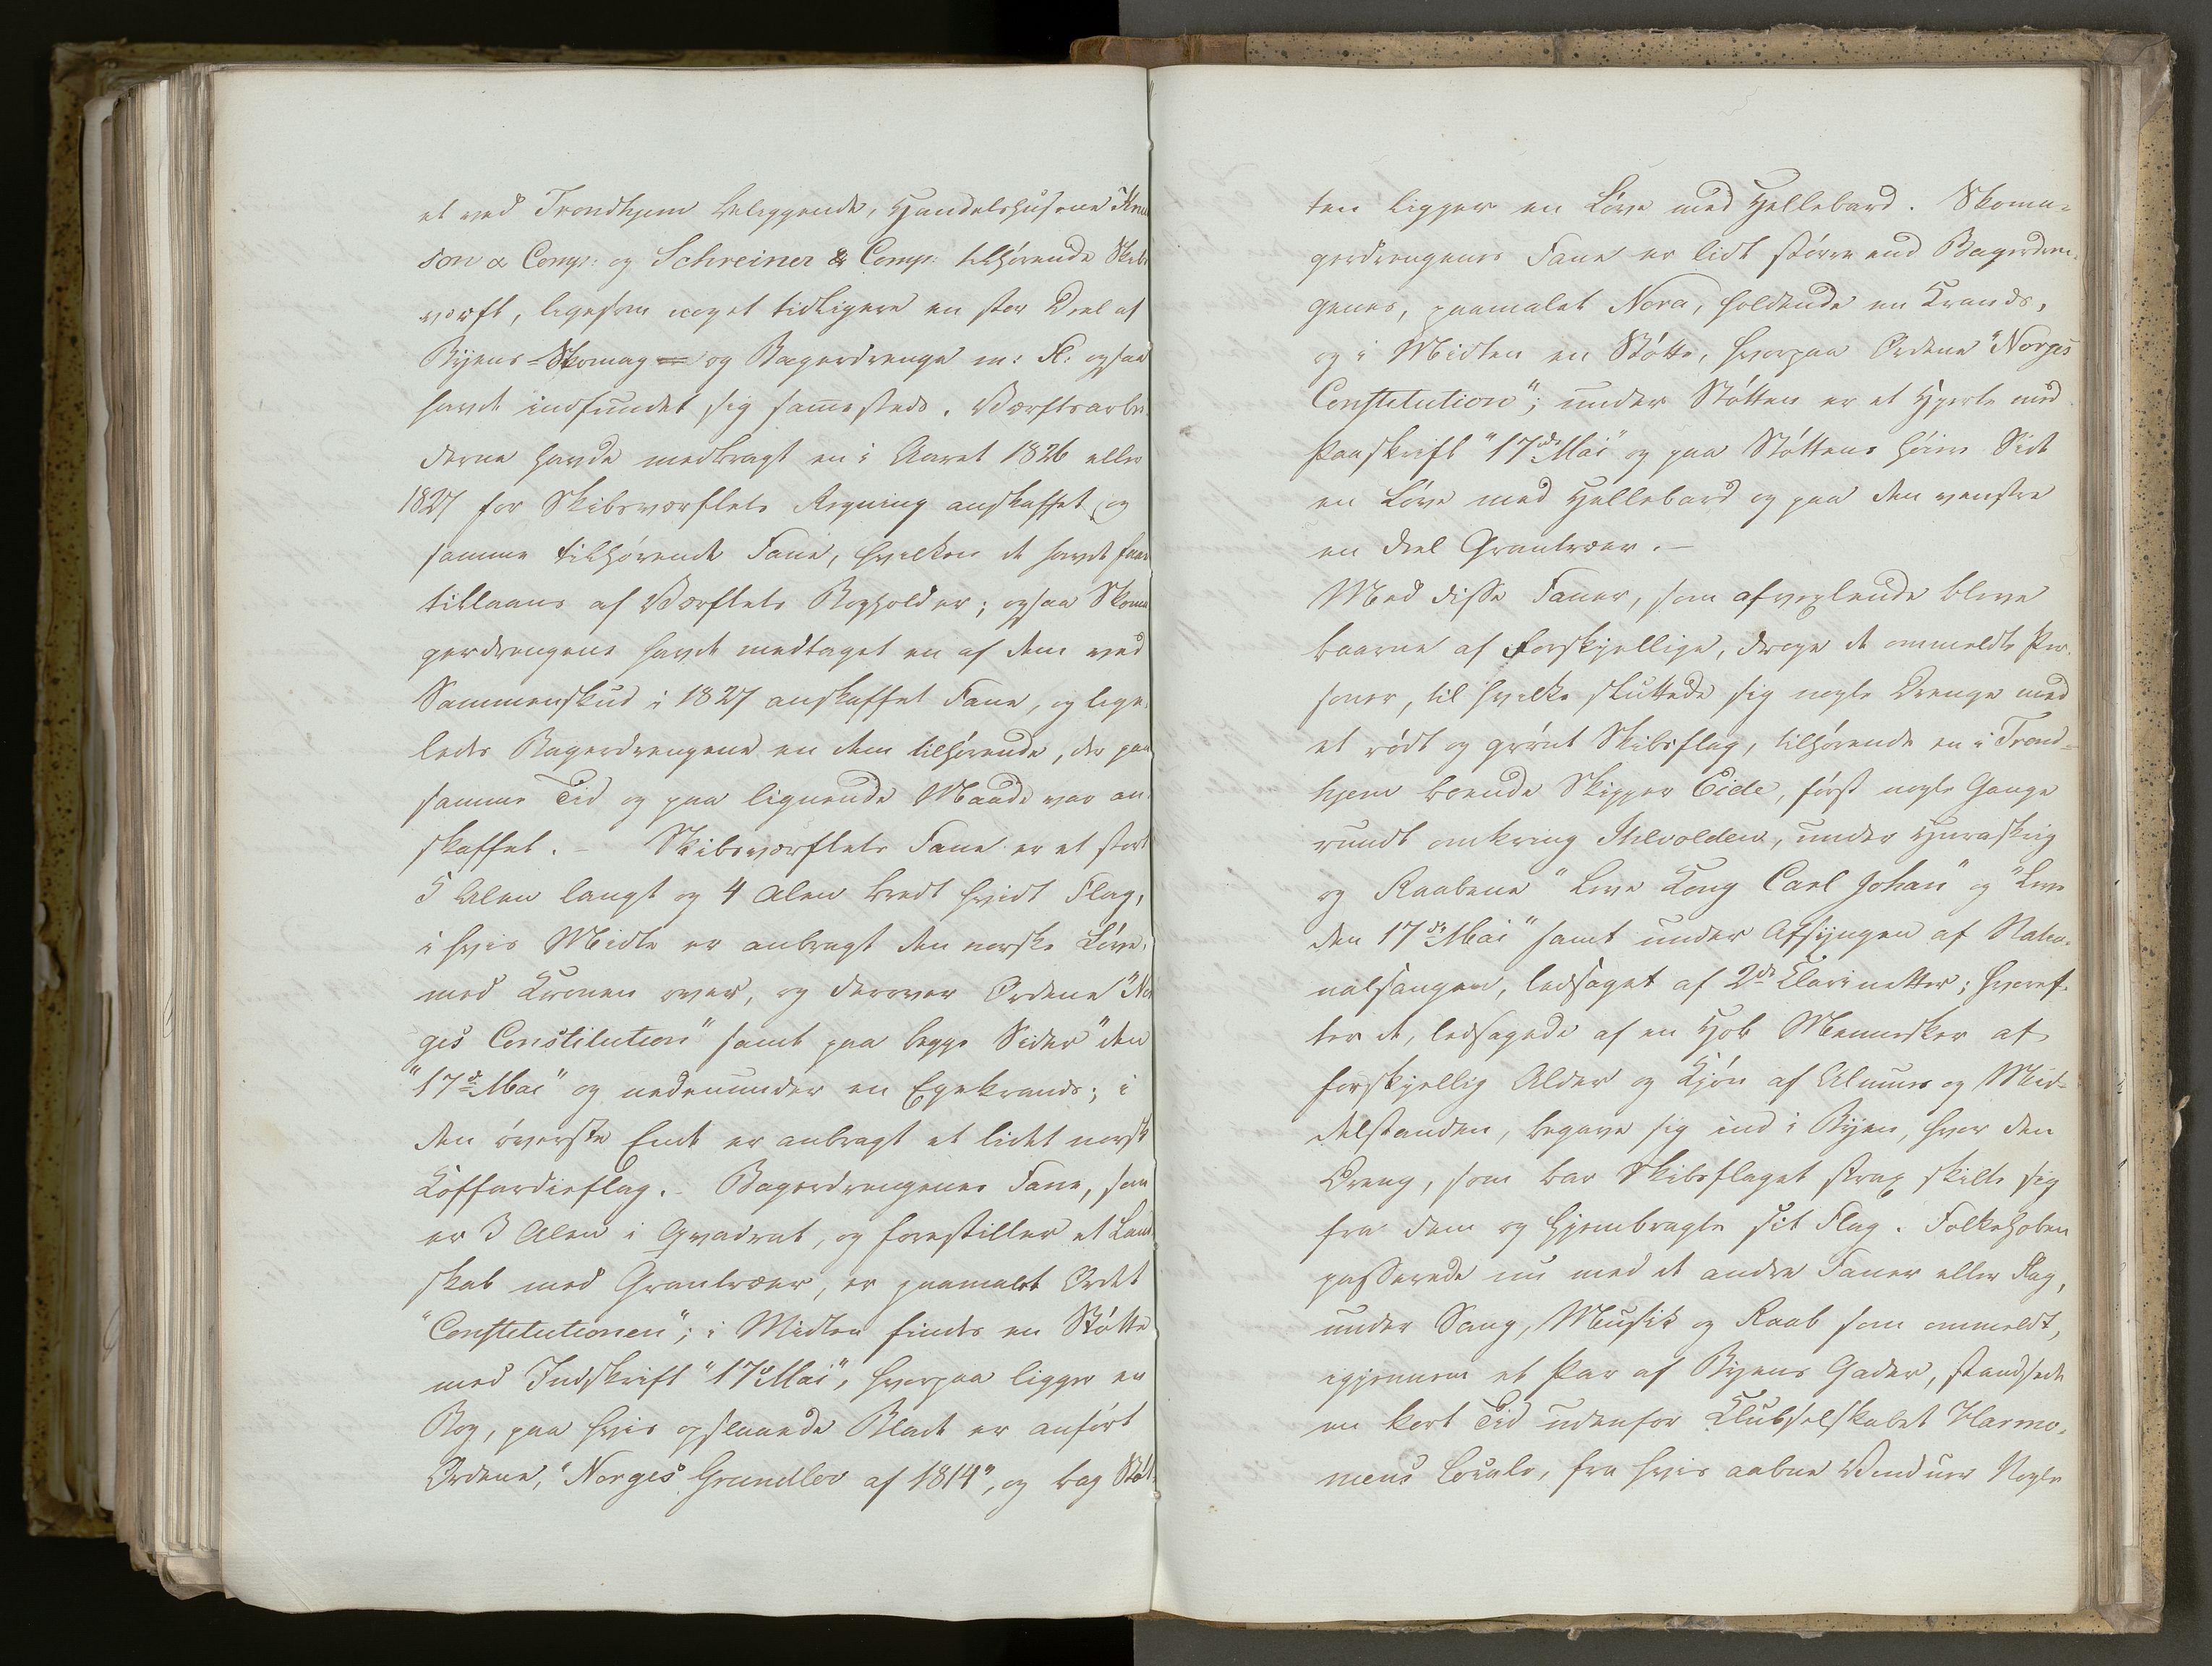 et ved Trondhjem beliggende, Handelshusene Knud
son & Comp: og Schreiner & Comp: tilhørende Skibs
verft, ligesom noget tidligere en stor Deel af
Byens Skomag= og Bagerdrenge m: Fl: ogsaa
havde indfundet sig sammesteds. Værftsarbei
derne havde medbragt en i Aaret 1826 eller
1827 for Skibsværftets Regning anskaffet og
samme tilhørende Fane, hvilken de havde faaet
tillaans af Værftets Bogholder; ogsaa Skoma
gerdrengene havde medtaget en af dem ved
Sammenskud i 1827 anskaffet Fane, og lige
ledes Bagerdrengene en dem tilhørende, der paa
samme Tid og paa lignende Maade var an
skaffet. – Skibsværftets Fane er et stort
5 Alen langt og 4 Alen bredt hvidt Flag,
i hvis Midte er anbragt den norske Løve,
med Kronen over, og derover Ordene "Nor
ges Constitution" samt paa begge Sider "den
"17de Mai" og nedenunder en Egekrands; i
den øverste Ende er anbragt et lidet norsk
Koffardieflag. – Bagerdrengenes Fane, som
er 3 Alen i Qvadrat, og forestiller et Land
skab med Grantræer, er paamalet Ordet
"Constitutionen"; i Midten findes en Støtte
med Indskrift "17 Mai", hvorpaa ligger en
Bog, paa hvis opslaaede Blade er anført
Ordene, "Norges Grundlov af 1814", og bag Støt
ten ligger en Løve med Hellebard. Skoma=
gerdrengenes Fane er lidt større end Bagerdren
genes, paamalet Nora, holdende en Krands,
og i Midten en Støtte, hvorpaa Ordene "Norges
Constitution"; under Støtten er et Hjerte med
Paaskrift "17de Mai" og paa Støttens høire Side
en Løve med Hellebard og paa den venstre
en Deel Grantræer. –
Med disse Faner, som afvexlende bleve
baarne af Forskjellige, droge de ommeldte Per
soner, til hvilke sluttede sig nogle Drenge med
et rødt og grønt Skibsflag, tilhørende en i Trond=
hjem boende Skipper Eide, først nogle Gange
rundt omkring Ihlevolden, under Hurraskrig
og Raabene "Leve Kong Carl Johan" og "Leve
den 17de Mai" samt under Afsyngen af Natio
nalsangen, ledsaget af 2de Clarinetter; hveref
ter de, ledsagede af en Hob Mennesker af
forskjellig Alder og Kjøn af Almues og Mid=
delstanden, begave sig ind i Byen, hvor den
Dreng, som bar Skibsflaget strax skilte sig
fra dem og hjembragte sit Flag. Folkehoben
passerede nu med de andre Faner eller Flag,
under Sang, Musik og Raab som ommeldt,
igjennem et Par af Byens Gader, standsede
en kort Tid udenfor Klubselskabet Harmo
niens Locale, fra hvis aabne Vinduer Nogle